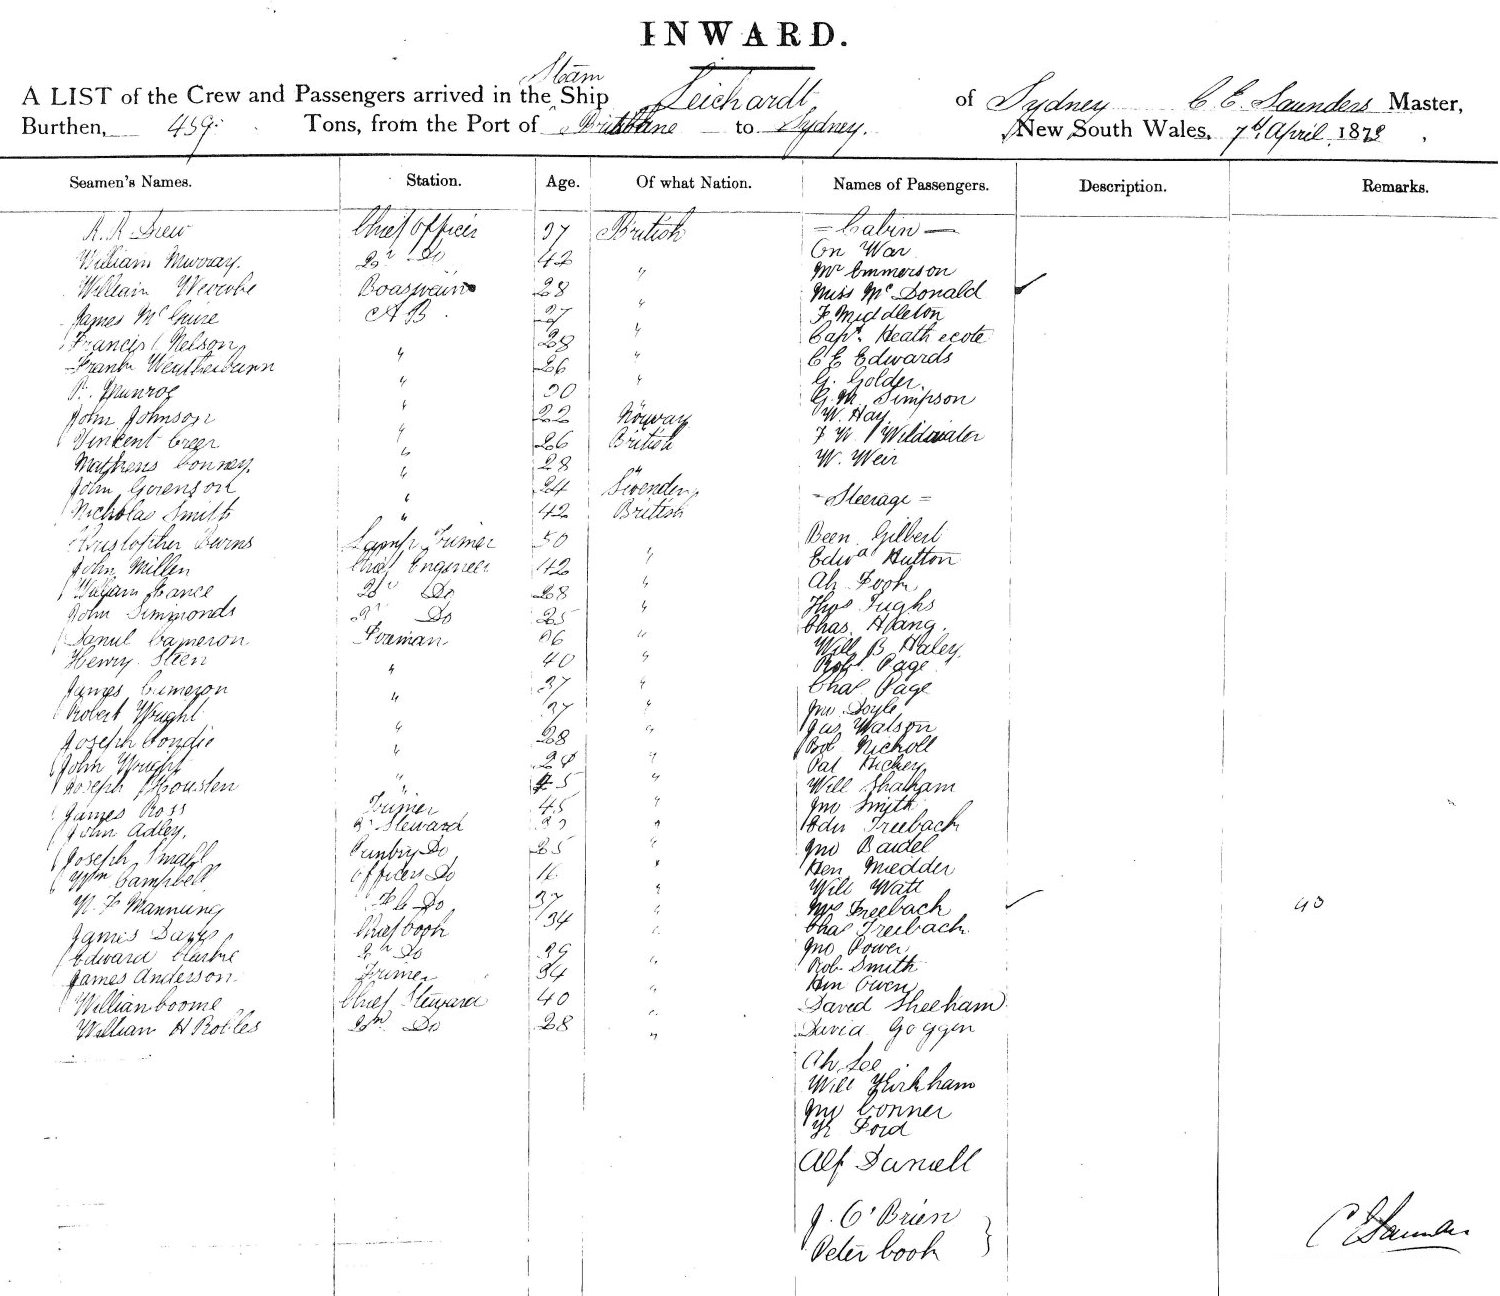 INWARD.
Steam
A LIST of the Crew and Passengers arrived in the Ship Leichardt of Sydney C. E. Saunders Master,
Burthen, 459 Tons, from the Port of Brisbane to Sydney. New South Wales, 7th April 1879
Seamen's Names. Station. Age. Of what Nation. Names of Passengers. Description. Remarks.
Chief Officer 37 British = Cabin =
William Murray. 2nd Do 42 " On War
Mr Emmerson
William Boatswain 28 " Miss McDonald
James McGuire A B. 27 " F Middleton
Francis Nelson " 28 " Capt. Heathecote
Frank " 26 " C E Edwards
P. Munroe " 30 " G. Golder
G. M. Simpson
John Johnson " 22 Norway W. Hay
Vincent Greer " 26 British F W Wildwater
Conney. " 28 " W. Weir
John Gorenson " 24 Sweeden
Nicholas Smith " 42 British - Steerage =
Christopher Burns Lamp Trimer 50 " Been Gilbert
John Millen Chief Engineer 42 " Edwd Hutton
William Lance 2nd Do 28 " Ah Fook
John Simmonds 3r Do 25 " Thos Tughs
Chas. Hang.
Danul Cameron Foreman 36 " Will B Haley
Henry Steen " 40 " Robt. Page
James Cameron " 37 " Chas Page
Robert Wright " 37 " Jno Doyle
Jas Watson
Joseph Condie " 28 " Rob Nicholl
John Wright " 28 " Pat Hickey
Joseph Housten " 45 " Will Shatham
James Ross Trimer 45 " Jno Smith
John Adley. 2r Steward " Edw Treebach
Joseph Small Pantry Do 25 " Jno Baidel
Wm Campbell Officers Do 16 " Hen Mudder
Will Watt
W. F Mannung F C Do 37 " Mrs Treebach 43
James Davis Chief Cook 34 " Chas Treebach
Edward Clarke 2nd Do 29 " Jno Power
James Anderson Trimer 34 " Rob Smith
Hen Owen
William Coome Chief Steward 40 " David Sheeham
William H Robles 2nd Do 28 " David Goggin
Ah Lee
Will Kirkham
Jno Conner
Ford
Alf Daniell
J. O'Brien
Peter Cook
C E Saunders